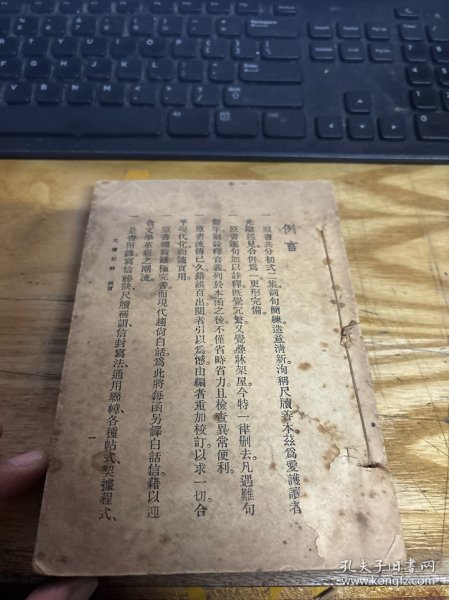 例言
一 原書共分初式二集詞句簡練。造意清新洵稱尺牘善本茲爲愛護讀者
光陰起見合併爲一更形完備。
一 原書逐句加以註釋旣覺冗繁又覺疊牀架屋今特一律刪去凡遇難句
僻字則詮釋音義列於本函之後不僅省時省力且檢查異常便利。
一 原書流傳已久錯誤百出閱者引以爲憾由編者重加校訂以求一切合
乎現代化而適實用。
一 原書體裁雖極完善而現代趨尚白話爲此將每函另譯白話信藉以迎
合文學革新之潮流。
一 是書附錄寫信秘訣尺牘稱謂信封寫法通用聯幛各種帖式契據程式、
例言
一
孔夫子旧书网
www.kongfz.com